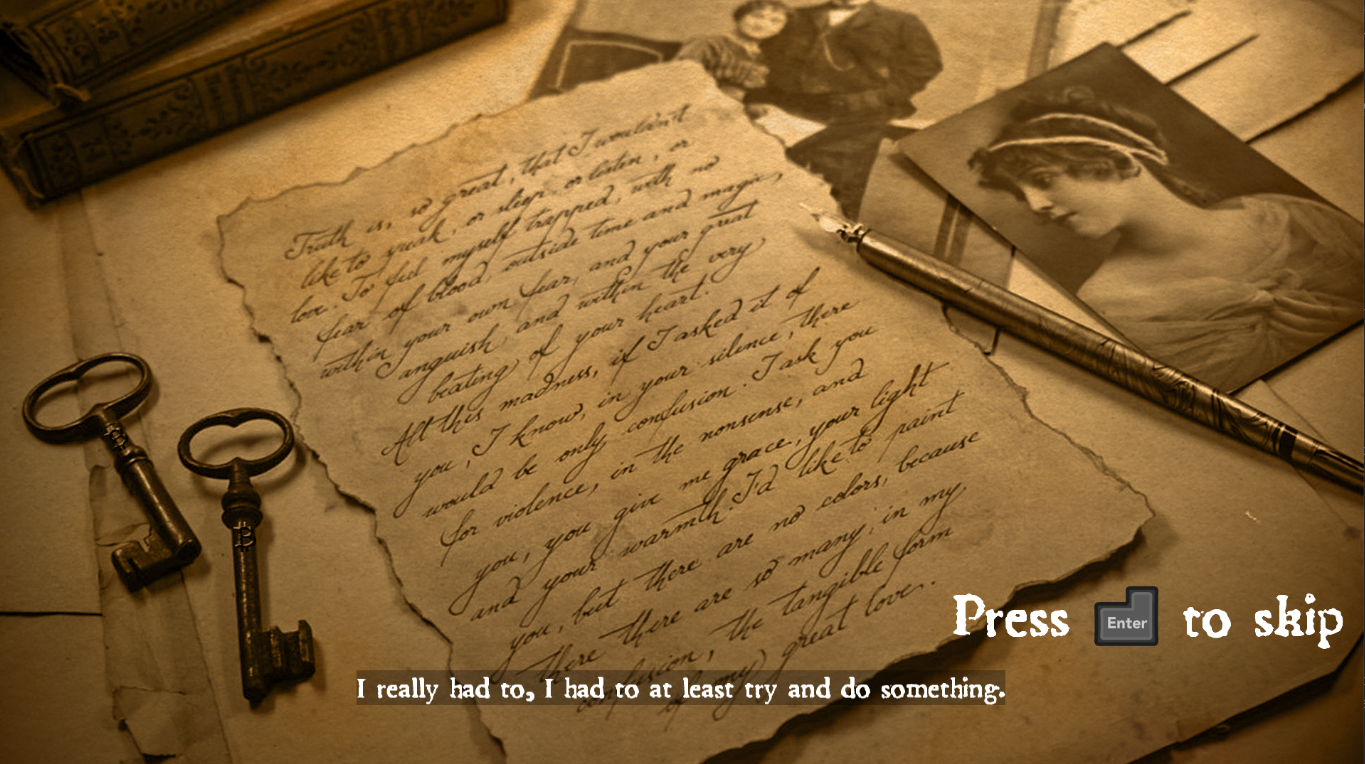 Truth is, so great, that I wouldn't
like to speak, or sleep, or listen, or
love. To feel myself trapped, with no
fear of blood, outside time and magic,
within your own fear, and your great
anguish, and within the very
beating of your heart.
All this madness, if I asked it of
you, I know, in your silence, there
would be only confusion. I ask you
for violence, in the nonsense, and
you, you give me grace, your light
and your warmth. I'd like to paint
you, but there are no colors, because
there there are so many, in my
confusion, the tangible form
of my great love.
Press Enter to skip
I really had to, I had to at least try and do something.